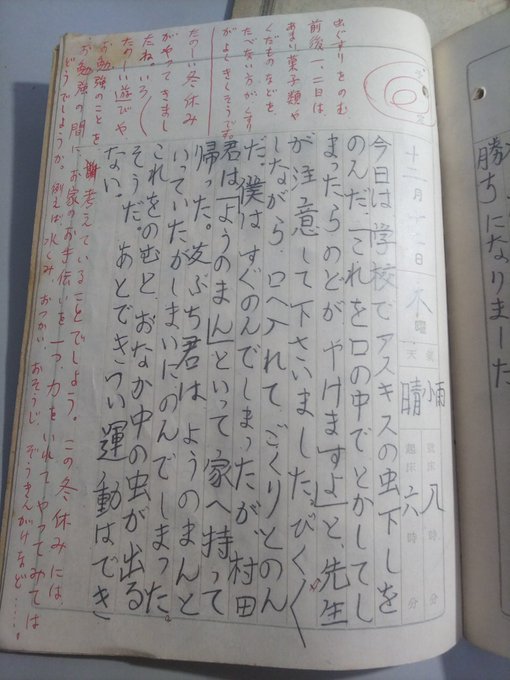 十二月 日 木曜
天気 晴小雨
就床 八時 分
起床 六時 分
今日は学校でアスキスの虫下しを
のんだ。「これを口の中でとかしてし
まったらのどがやけますよ」と、先生
が注意して下さいました。びく〱
しながら、口へ入れて、ごくりとのん
だ。僕はすぐのんでしまったが、村田
君は「ようのまん」といって家へ持って
帰った。岩ぶち君はようのまんと
いっていたがしまいにのんでしまった。
これをのむと、おなか中の虫が出る
そうだ。あとできつい運動はでき
ない。
虫ぐすりをのむ
前後一、二日は、
あまい菓子類や
くだものなどを
たべない方が、くすり
がよくきくそうです。
たのしい冬休み
がやってきまし
たね。いろ〱
たのしい遊びや
お勉強のことを考えていることでしょう。この冬休みには、
お勉強の間に、お家のお手伝いを一つ、力をいれてやってみては
どうでしょうか。例えば、水くみ、おつかい、おそうじ、ぞうきんがけなど……。
勝ちになりました